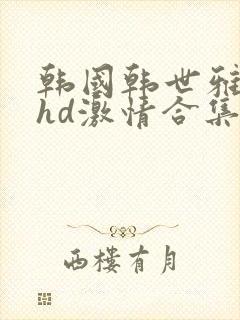 韩国韩世雅
hd激情合集
西楼有月